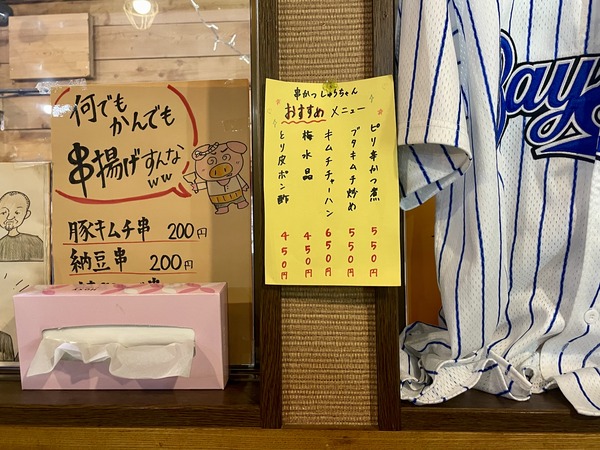 何でも
かんでも
串揚げすんな
ww
豚キムチ串 200円
納豆串 200円
串かつ しょうちゃん
おすすめ メニュー
ピリ辛かつ煮 550円
ブタキムチ炒め 550円
キムチチャーハン 650円
梅水晶 450円
とり皮ポン酢 450円
Bay